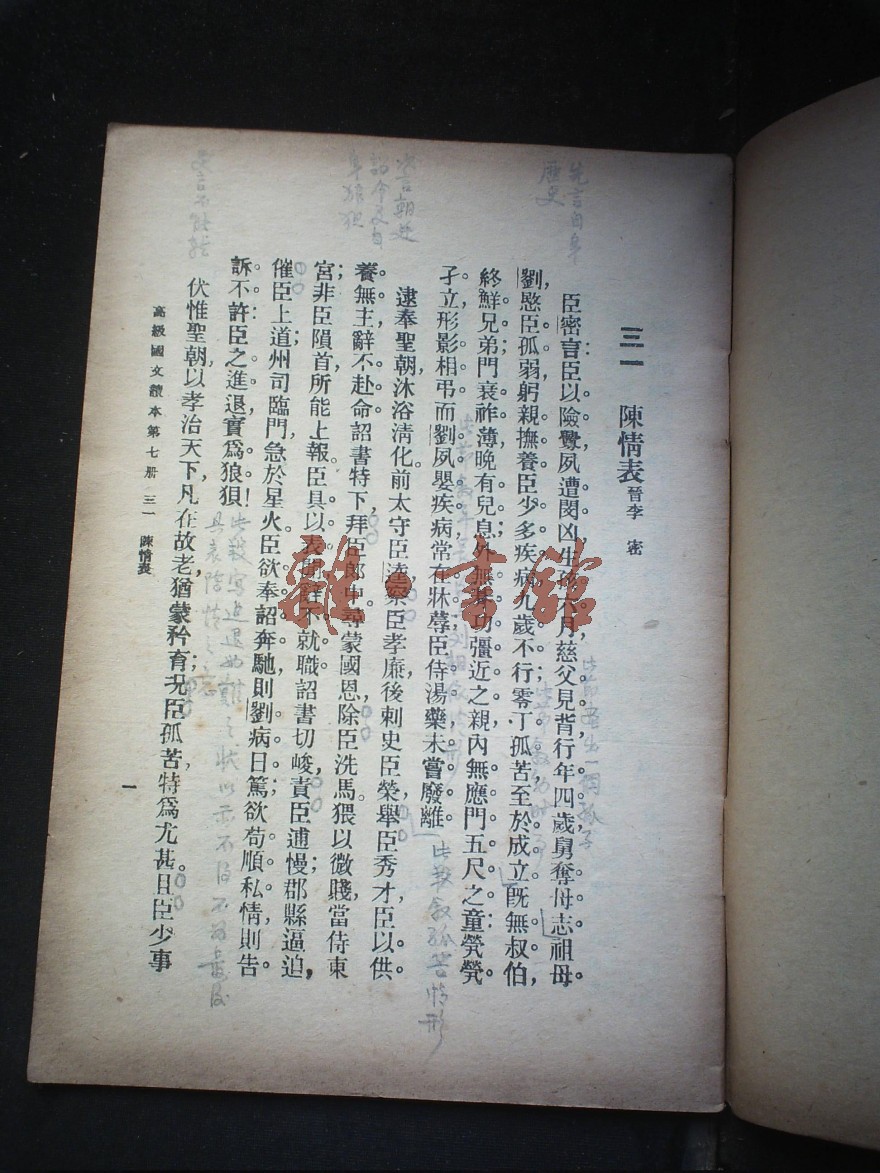 三一 陳情表 晉李密
臣密言：臣以險釁，夙遭閔凶。生孩六月，慈父見背。行年四歲，舅奪母志。祖母
劉，愍臣孤弱，躬親撫養。臣少多疾病，九歲不行。零丁孤苦，至於成立。旣無叔伯，
終鮮兄弟；門衰祚薄，晚有兒息。外無朞功彊近之親，內無應門五尺之童。煢煢
孑立，形影相弔。而劉夙嬰疾病，常在牀蓐；臣侍湯藥，未嘗廢離。
逮奉聖朝，沐浴清化。前太守臣逵，察臣孝廉；後刺史臣榮，舉臣秀才。臣以供
養無主，辭不赴命。詔書特下，拜臣郎中；尋蒙國恩，除臣洗馬。猥以微賤，當侍東
宮；非臣隕首所能上報。臣具以表聞，辭不就職。詔書切峻，責臣逋慢；郡縣逼迫，
催臣上道；州司臨門，急於星火。臣欲奉詔奔馳，則劉病日篤；欲苟順私情，則告
訴不許。臣之進退，實爲狼狽！
伏惟聖朝，以孝治天下。凡在故老，猶蒙矜育；况臣孤苦，特爲尤甚。且臣少事
高級國文讀本第七册 三一 陳情表
一
先言自身
歷史
次言朝廷
詔命又自
身狼狽
此段敘孤苦情形
雜·書館